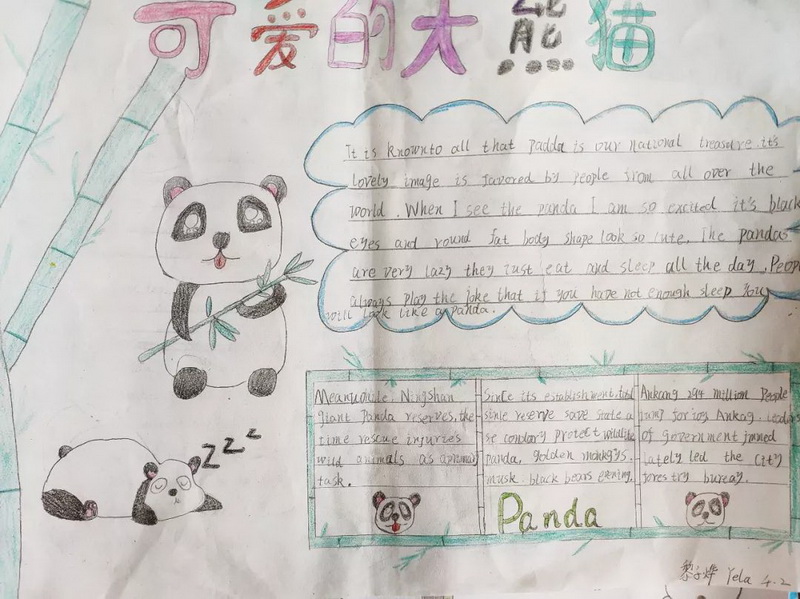 可爱的大熊猫
It is known to all that Padda is our national treasure.it's
lovely image is favored by people from all over the
world. When I see the panda I am so excited it's black
eyes and round fat body shape look so cute. The pandas
are very lazy they just eat and sleep all the day. Peop
always play the joke that if you have not enough sleep You
will look like a panda.
Meanwhile, Ningshan
giant Panda reserves, the
time rescue injuries
wild animals as a
task.
Since its establishment,
reserve save state a
protect wildlife
panda, golden monkeys.
musk. black bears
Ankang 294 million People
for joy Ankag.
of government
lately led the City
forestry
Panda
zzz
Yela 4.2